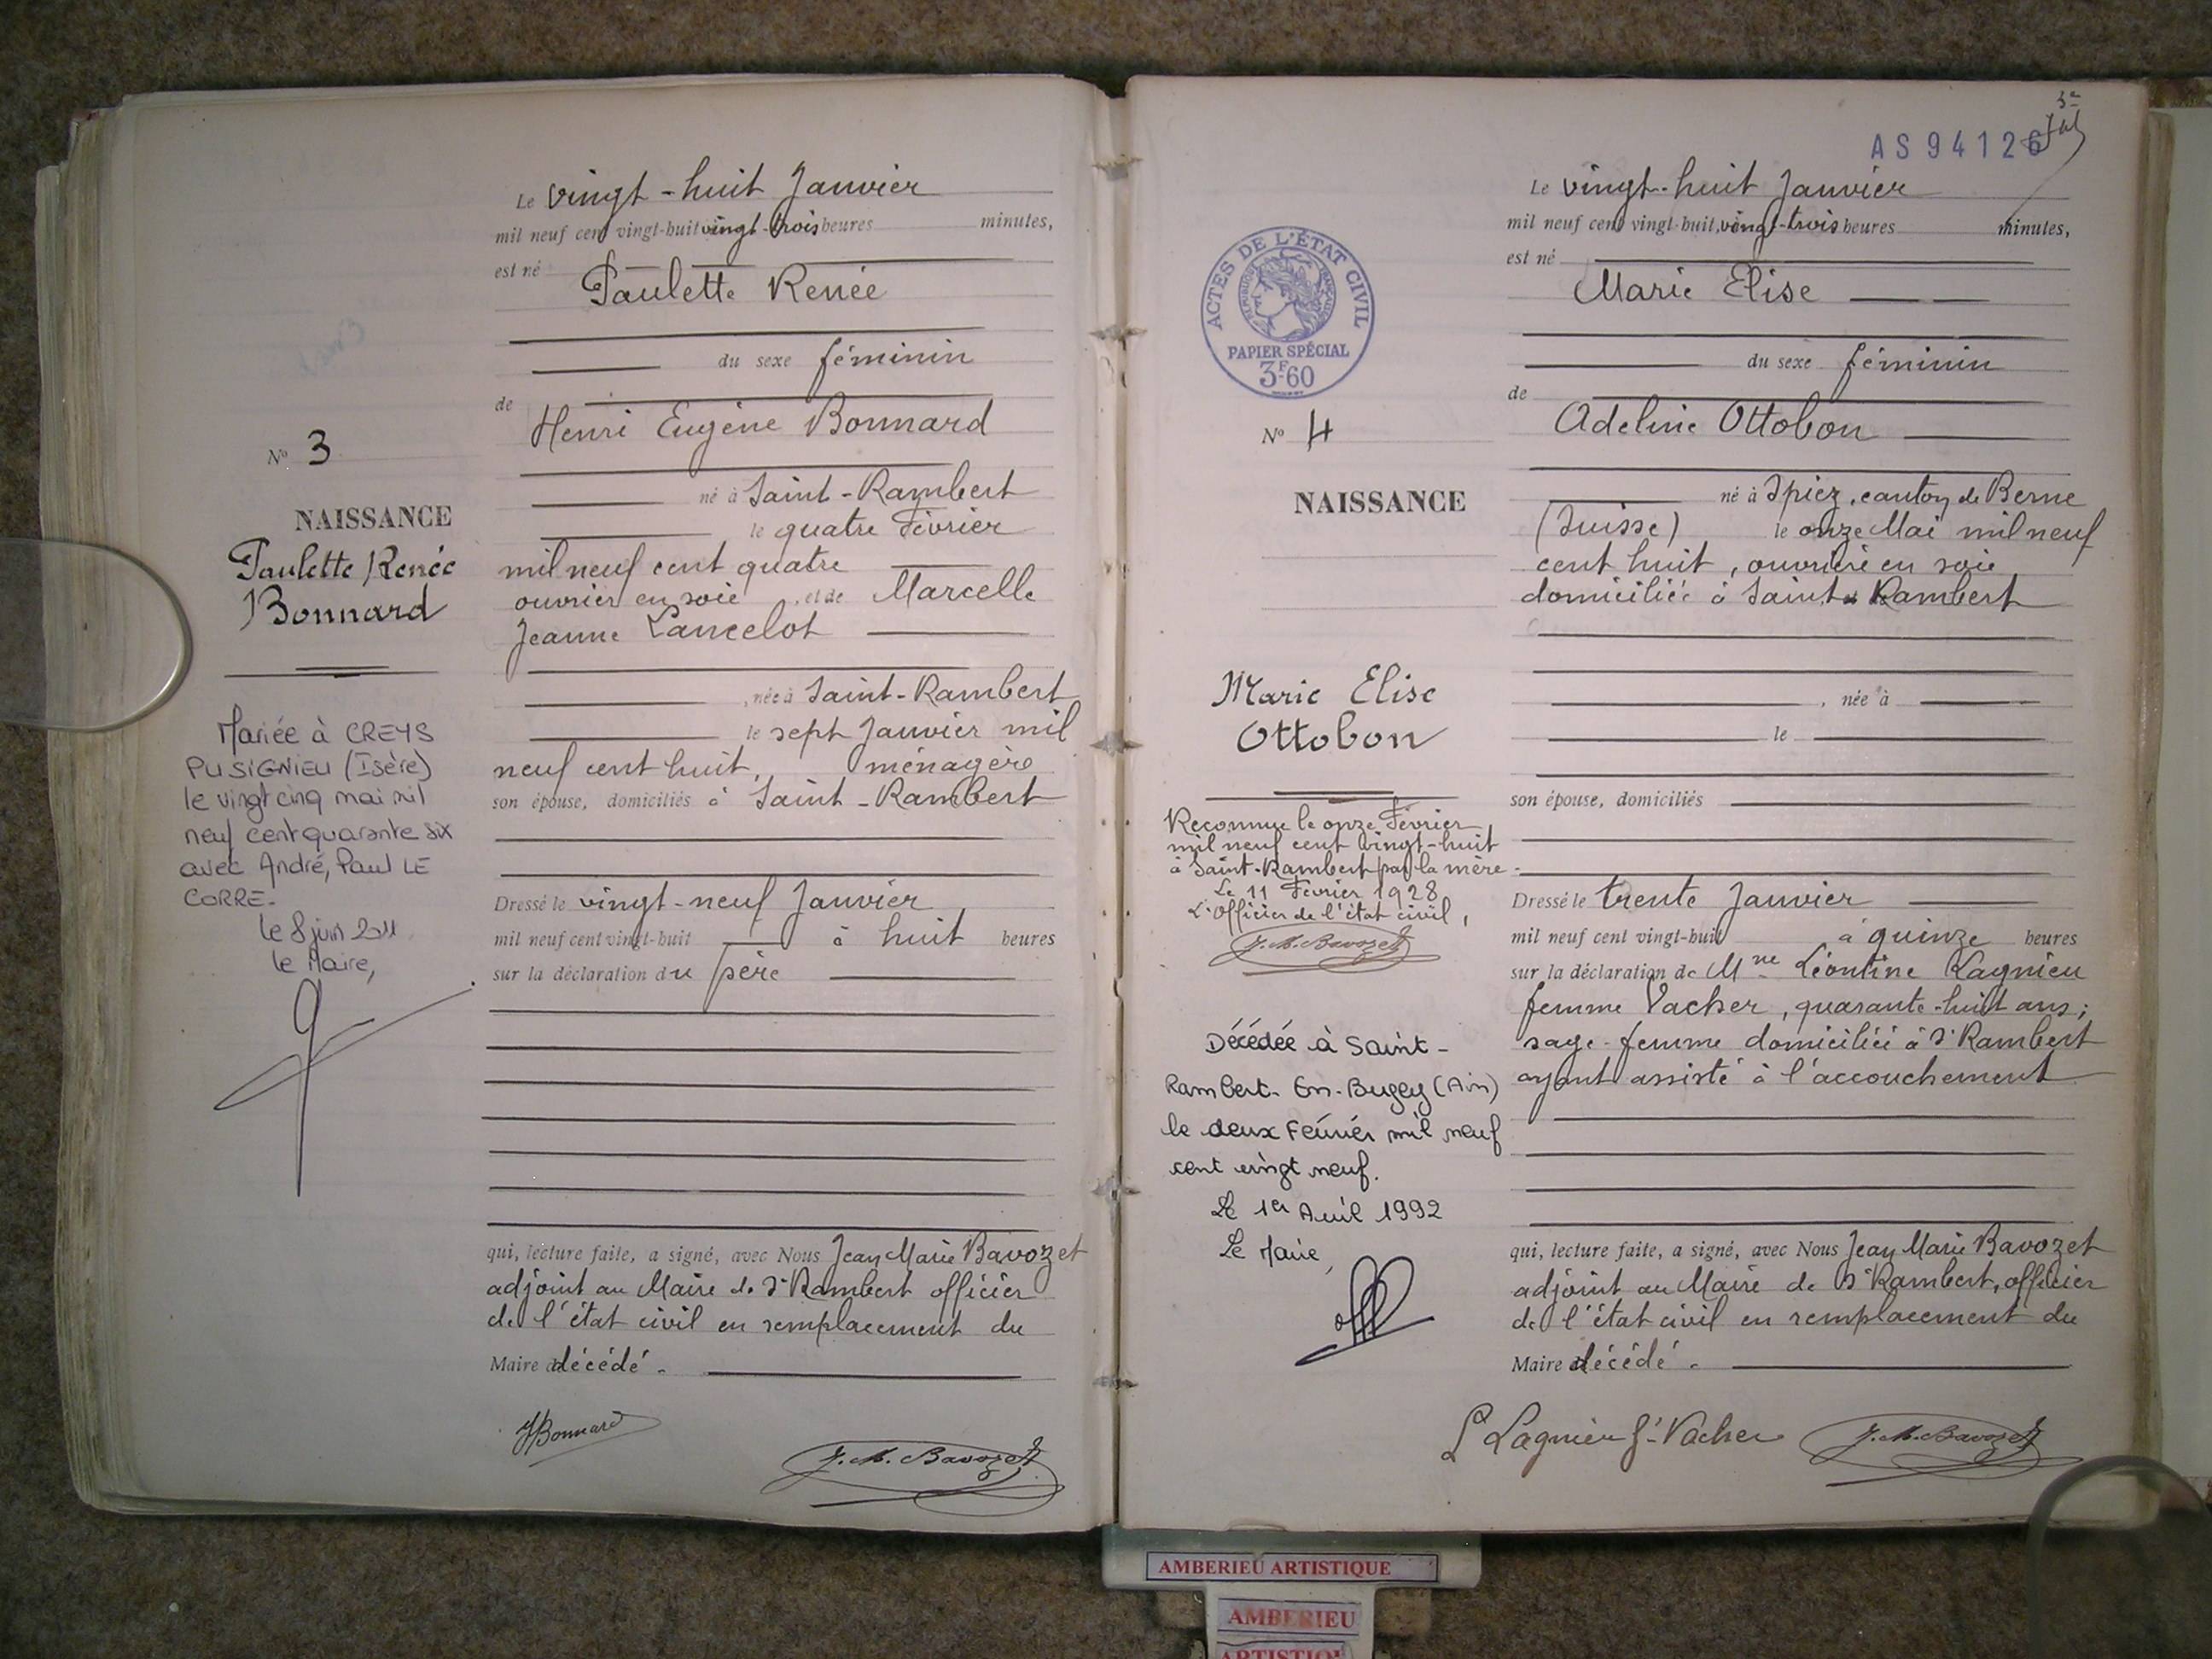 Le vingt-huit Janvier
mil neuf cent vingt-huit vingt-trois heures minutes,
est né
Paulette Renée
du sexe féminin
de
Henri Eugène Bonnard
né à Saint-Rambert
le quatre Février
mil neuf cent quatre
ouvrier en soie , et de Marcelle
Jeanne Lancelot
, née à Saint-Rambert
le sept Janvier mil
neuf cent huit, ménagère
son épouse, domiciliés à Saint-Rambert
Dressé le vingt-neuf Janvier
mil neuf cent vingt-huit à huit heures
sur la déclaration du père
qui, lecture faite, a signé, avec Nous Jean Marie Bavozet
adjoint au Maire de St Rambert officier
de l'état civil en remplacement du
Maire décédé.
HBonnard
J. M. Bavozet
No 3
NAISSANCE
Paulette Renée
Bonnard
Mariée à CREYS
PUSIGNIEU (Isère)
le vingt cinq mai mil
neuf cent quarante six
avec André, Paul LE
CORRE.
le 8 juin 2011
le Maire,
AS 94126
Le vingt-huit Janvier
mil neuf cent vingt-huit, vingt-trois heures minutes,
est né
Marie Elise
du sexe féminin
de
Adeline Ottobon
né à Spiez, canton de Berne
(Suisse) le onze Mai mil neuf
cent huit, ouvrière en soie
domiciliée à Saint Rambert
, née à
le
son épouse, domiciliés
Dressé le trente Janvier
mil neuf cent vingt-huit à quinze heures
sur la déclaration de Mme Léontine Lagnieu
femme Vacher, quarante-huit ans;
sage-femme domiciliée à St Rambert
ayant assisté à l'accouchement
qui, lecture faite, a signé, avec Nous Jean Marie Bavozet
adjoint au Maire de St Rambert, officier
de l'état civil en remplacement du
Maire décédé.
L Lagnieu f-Vacher J. M. Bavozet
ACTES DE L'ÉTAT CIVIL
RÉPUBLIQUE FRANÇAISE
PAPIER SPÉCIAL
3F60
No 4
NAISSANCE
Marie Elise
Ottobon
Reconnue le onze Février
mil neuf cent vingt-huit
à Saint-Rambert par la mère.
Le 11 Février 1928
L'Officier de l'état civil,
J. M. Bavozet
Décédée à Saint-
Rambert-En-Bugey (Ain)
le deux Février mil neuf
cent vingt neuf.
Le 1er Avril 1992
Le Maire,
AMBERIEU ARTISTIQUE
AMBERIEU
ARTISTIQUE